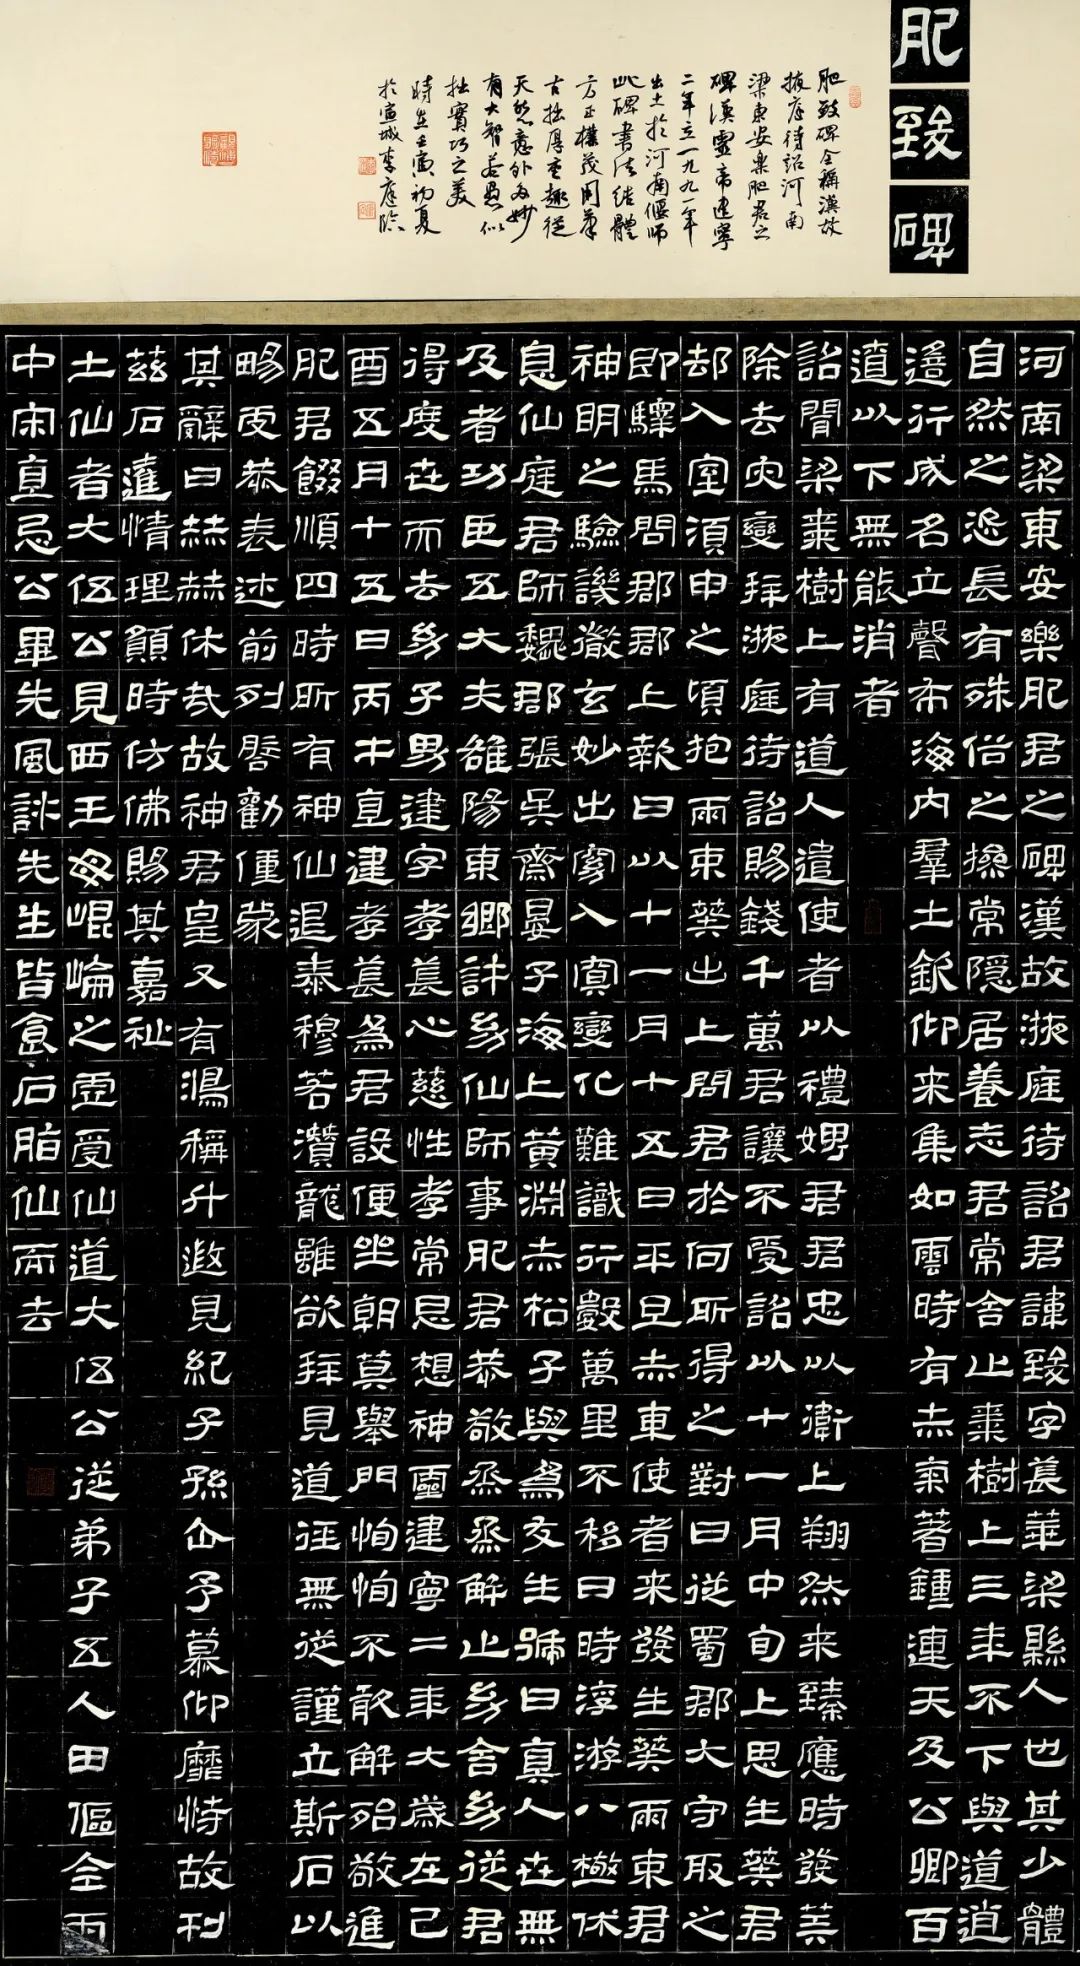 肥致碑
肥致碑全稱漢故
掖庭待詔河南
梁東安樂肥君之
碑漢靈帝建寧
二年立一九九一年
出土於河南偃師
此碑書法結體
方正樸茂用筆
古拙厚重趣從
天然意外為妙
有大智若愚似
拙實巧之美
時在壬寅初夏
於宣城李庭臨
河南梁東安樂肥君之碑漢故掖庭待詔君諱致字萇華梁縣人也其少體
自然之恣長有殊俗之操常隱居養志君常舍止棗樹上三年不下與道逍
遙行成名立聲布海內群士欽仰來集如雲時有赤氣著鍾連天及公卿百
遼以下無能消者
詔聞梁棗樹上有道人遣使者以禮娉君君忠以衛上翔然來臻應時發算
除去災變拜掖庭待詔賜錢千萬君讓不受詔以十一月中旬上思生葵君
却入室須申之頃抱兩束葵出上問君於何所得之對曰從蜀郡大守取之
即驛馬問郡郡上報曰以十一月十五日平旦赤車使者來發生葵兩束君
神明之驗譏徹玄妙出窈入冥變化難識行數萬里不移日時浮游八極休
息仙庭君師魏郡張吳齋晏子海上黃淵赤松子與為友生號曰真人世無
及者功臣五大夫雒陽東鄉許幼仙師事肥君恭敬烝烝解止幼舍幼從君
得度世而去幼子男建字孝萇心慈性孝常思想神靈建寧二年大歲在己
酉五月十五日丙午直建孝萇為君設便坐朝莫舉門恂恂不敢解殆敬進
肥君餟順四時所有神仙退泰穆若潛龍雖欲拜見道徑無從謹立斯石以
暢虔恭表述前列啓勸僮蒙
其辭曰赫赫休哉故神君皇又有鴻稱升遐見紀子孫企予慕仰靡恃故刊
茲石達情理願時仿佛賜其嘉祉
土仙者大伍公見西王母崐崘之虛受仙道大伍公從弟子五人田傴全雨
中宋直忌公畢先風許先生皆食石脂仙而去